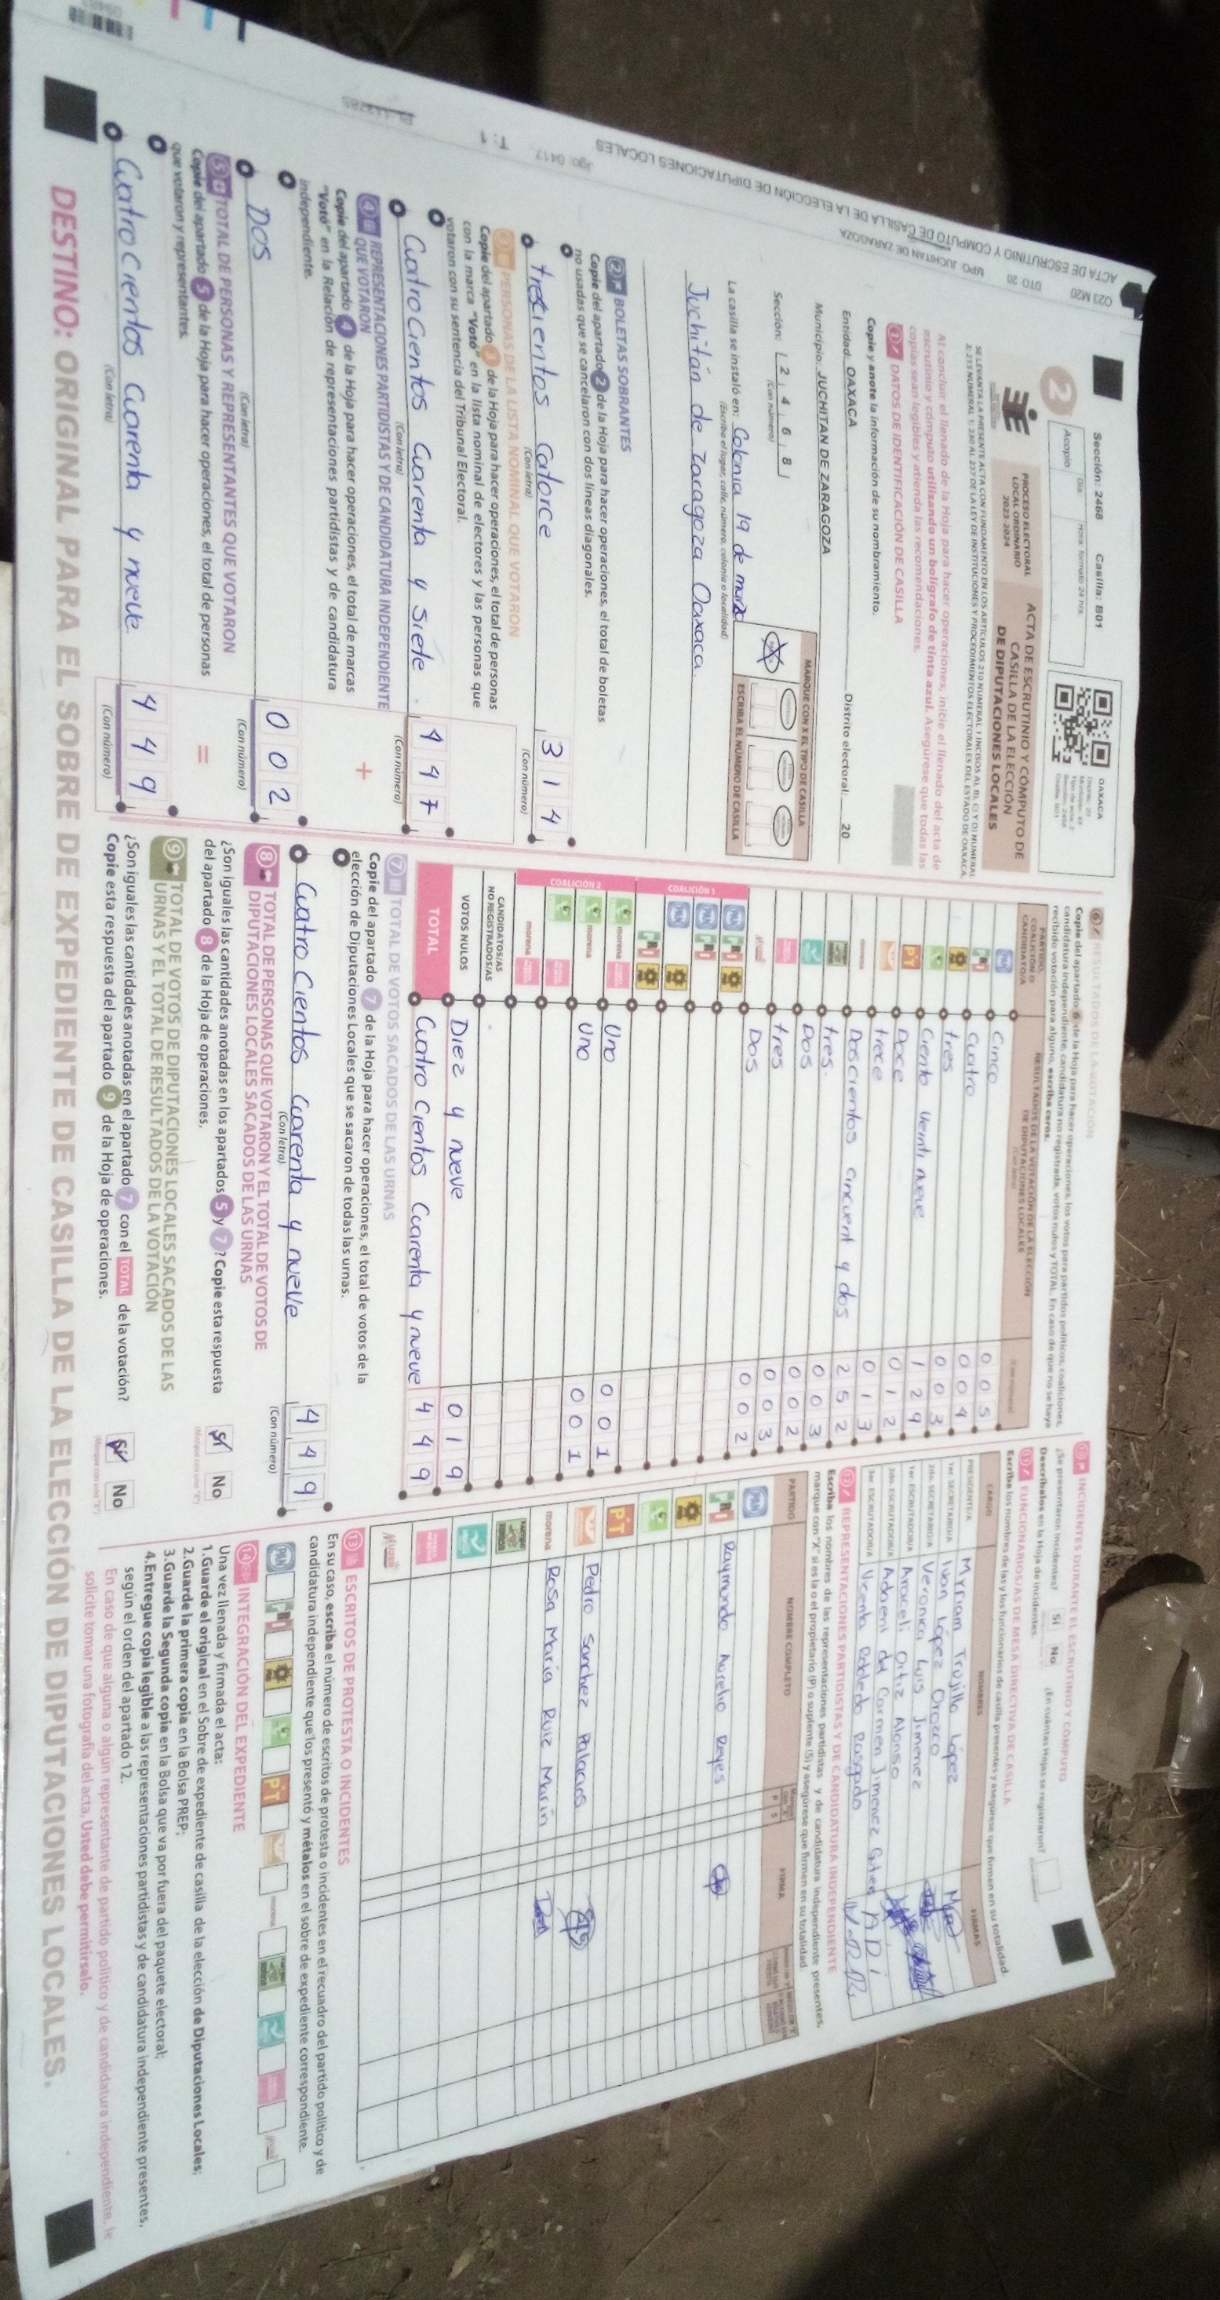 ACTA DE ESCRUTINIO Y CÓMPUTO DE CASILLA DE LA ELECCIÓN DE DIPUTACIONES LOCALES
023 M20 DTO 20 MPO: JUCHITAN DE ZARAGOZA
Jgo: 0417
T: 1
Sección: 2468 Casilla: B01
2
Acopio
Día:
Hora: formato 24 hrs.
OAXACA
PROCESO ELECTORAL
LOCAL ORDINARIO
2023-2024
ACTA DE ESCRUTINIO Y CÓMPUTO DE
CASILLA DE LA ELECCIÓN
DE DIPUTACIONES LOCALES
Al concluir el llenado de la Hoja para hacer operaciones, inicie el llenado del acta de
escrutinio y cómputo utilizando un bolígrafo de tinta azul. Asegúrese que todas las
copias sean legibles y atienda las recomendaciones.
1 DATOS DE IDENTIFICACIÓN DE CASILLA
Copie y anote la información de su nombramiento.
Entidad: OAXACA Distrito electoral: 20
Municipio: JUCHITAN DE ZARAGOZA
Sección: 2 4 6 8
(Con número)
MARQUE CON X EL TIPO DE CASILLA
ESCRIBA EL NÚMERO DE CASILLA
La casilla se instaló en: Colonia 19 de marzo
(Escribe el lugar, calle, número, colonia o localidad)
Juchitán de Zaragoza Oaxaca.
2 BOLETAS SOBRANTES
Copie del apartado 2 de la Hoja para hacer operaciones, el total de boletas
no usadas que se cancelaron con dos líneas diagonales.
trescientos catorce 3 1 4
(Con letra) (Con número)
3 PERSONAS DE LA LISTA NOMINAL QUE VOTARON
Copie del apartado 3 de la Hoja para hacer operaciones, el total de personas
con la marca "Votó" en la lista nominal de electores y las personas que
votaron con su sentencia del Tribunal Electoral.
Cuatro Cientos Cuarenta y Siete 4 4 7
(Con letra) (Con número)
4 REPRESENTACIONES PARTIDISTAS Y DE CANDIDATURA INDEPENDIENTE
QUE VOTARON
+
Copie del apartado 4 de la Hoja para hacer operaciones, el total de marcas
"Votó" en la Relación de representaciones partidistas y de candidatura
independiente.
DOS 0 0 2
(Con letra) (Con número)
5 TOTAL DE PERSONAS Y REPRESENTANTES QUE VOTARON
=
Copie del apartado 5 de la Hoja para hacer operaciones, el total de personas
que votaron y representantes.
Cuatro Cientos Cuarenta y nueve 4 4 9
(Con letra) (Con número)
6 RESULTADOS DE LA VOTACIÓN
Copie del apartado 6 de la Hoja para hacer operaciones, los votos para partidos políticos, coaliciones,
candidatura independiente, candidatura no registrada, votos nulos y TOTAL. En caso de que no se haya
recibido votación para alguno, escriba ceros.
PARTIDO,
COALICIÓN O
CANDIDATO/A
RESULTADOS DE LA VOTACIÓN DE LA ELECCIÓN
DE DIPUTACIONES LOCALES
Cinco 0 0 5
Cuatro 0 0 4
tres 0 0 3
Ciento Veinti nueve 1 2 9
Doce 0 1 2
trece 0 1 3
Doscientos cincuent y dos 2 5 2
tres 0 0 3
Dos 0 0 2
tres 0 0 3
Dos 0 0 2
COALICIÓN 1
COALICIÓN 2
Uno 0 0 1
Uno 0 0 1
CANDIDATOS/AS
NO REGISTRADOS/AS
VOTOS NULOS Diez y nueve 0 1 9
TOTAL Cuatro Cientos Cuarenta y nueve 4 4 9
7 TOTAL DE VOTOS SACADOS DE LAS URNAS
Copie del apartado 7 de la Hoja para hacer operaciones, el total de votos de la
elección de Diputaciones Locales que se sacaron de todas las urnas.
Cuatro Cientos Cuarenta y nueve 4 4 9
(Con letra) (Con número)
8 TOTAL DE PERSONAS QUE VOTARON Y EL TOTAL DE VOTOS DE
DIPUTACIONES LOCALES SACADOS DE LAS URNAS
¿Son iguales las cantidades anotadas en los apartados 5 y 7? Copie esta respuesta
del apartado 8 de la Hoja de operaciones.
Sí No
9 TOTAL DE VOTOS DE DIPUTACIONES LOCALES SACADOS DE LAS
URNAS Y EL TOTAL DE RESULTADOS DE LA VOTACIÓN
¿Son iguales las cantidades anotadas en el apartado 7 con el TOTAL de la votación?
Copie esta respuesta del apartado 9 de la Hoja de operaciones.
Sí No
10 INCIDENTES DURANTE EL ESCRUTINIO Y CÓMPUTO
¿Se presentaron incidentes? Sí No ¿En cuántas Hojas se registraron?
Descríbalos en la Hoja de incidentes.
11 FUNCIONARIOS/AS DE MESA DIRECTIVA DE CASILLA
Escriba los nombres de las y los funcionarios de casilla presentes y asegúrese que firmen en su totalidad.
CARGO NOMBRES FIRMAS
PRESIDENTE/A Myriam Trujillo López
1er. SECRETARIO/A Ivan López Orozco
2do. SECRETARIO/A Veronica Luis Jimenez
1er. ESCRUTADOR/A Araceli Ortiz Alonso
2do. ESCRUTADOR/A
3er. ESCRUTADOR/A
12 REPRESENTACIONES PARTIDISTAS Y DE CANDIDATURA INDEPENDIENTE
Escriba los nombres de las representaciones partidistas y de candidatura independiente presentes,
marque con "X" si es la o el propietario (P) o suplente (S) y asegúrese que firmen en su totalidad.
PARTIDO NOMBRE COMPLETO FIRMA
Raymundo Aurelio Reyes
Pedro Sanchez Palacios
morena Rosa Maria Ruiz Marin
13 ESCRITOS DE PROTESTA O INCIDENTES
En su caso, escriba el número de escritos de protesta o incidentes en el recuadro del partido político y de
candidatura independiente que los presentó y métalos en el sobre de expediente correspondiente.
14 INTEGRACIÓN DEL EXPEDIENTE
Una vez llenada y firmada el acta:
1.Guarde el original en el Sobre de expediente de casilla de la elección de Diputaciones Locales;
2.Guarde la primera copia en la Bolsa PREP;
3.Guarde la Segunda copia en la Bolsa que va por fuera del paquete electoral;
4.Entregue copia legible a las representaciones partidistas y de candidatura independiente presentes,
según el orden del apartado 12.
En caso de que alguna o algún representante de partido político y de candidatura independiente, le
solicite tomar una fotografía del acta, Usted debe permitírselo.
DESTINO: ORIGINAL PARA EL SOBRE DE EXPEDIENTE DE CASILLA DE LA ELECCIÓN DE DIPUTACIONES LOCALES.